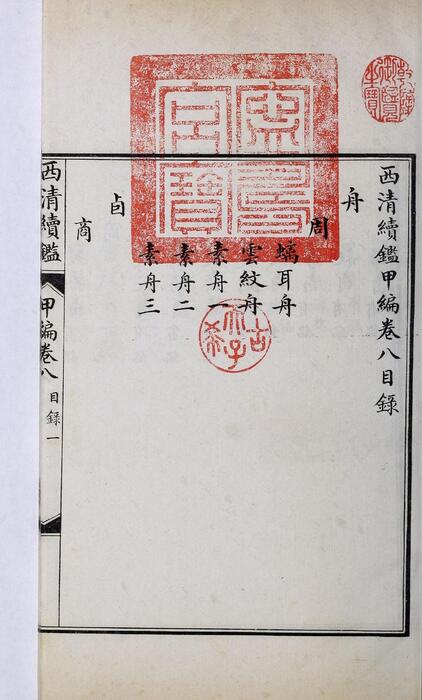 乾隆御覽之寶
寧壽宮寶
西清續鑑甲編卷八目錄
舟
周
螭耳舟
雲紋舟
素舟一
素舟二
素舟三
卣
商
古希天子
西清續鑑
甲編卷八
目錄一